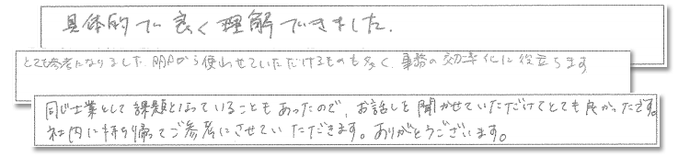 具体的で良く理解できました.
とても参考になりました. 明日から使わせていただけるものも多く、事務の効率化に役立ちます
同じ士業として課題となっていることもあったので、お話しを聞かせていただけてとても良かったです。
社内に持ち帰ってご参考にさせていただきます。ありがとうございます。